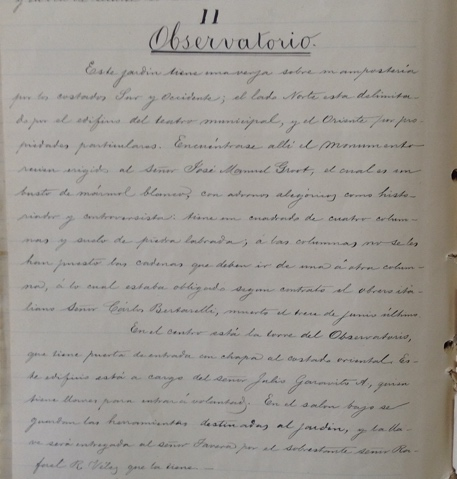 11
Observatorio.
Este jardin tiene una verja sobre mamposteria
por los costados Sur y Occidente; el lado Norte esta delimita-
do por el edificio del teatro municipal, y el Oriente por pro-
piedades particulares. Encuéntrase allí el Monumento
recien erigido al Señor José Manuel Groot, el cual es un
busto de mármol blanco, con adornos alegóricos como histo-
riador y controversista: tiene un cuadrado de cuatro colum-
nas y suelo de piedra labrada; á las columnas no se les
han puesto las cadenas que deben ir de una á otra colum-
na, á lo cual estaba obligado segun contrato el obrero ita-
liano Señor Cárlos Bertarelli, muerto el trece de junio último.
En el centro está la torre del Observatorio,
que tiene puerta de entrada con chapa al costado oriental. Es-
te edificio está a cargo del señor Julio Garavito A, quien
tiene llaves para entrar á voluntad. En el salon bajo se
guardan las herramientas destinadas al jardin, y la lla-
ve será entregada al señor por el sobrestante señor Ra-
fael R. Vélez que la tiene